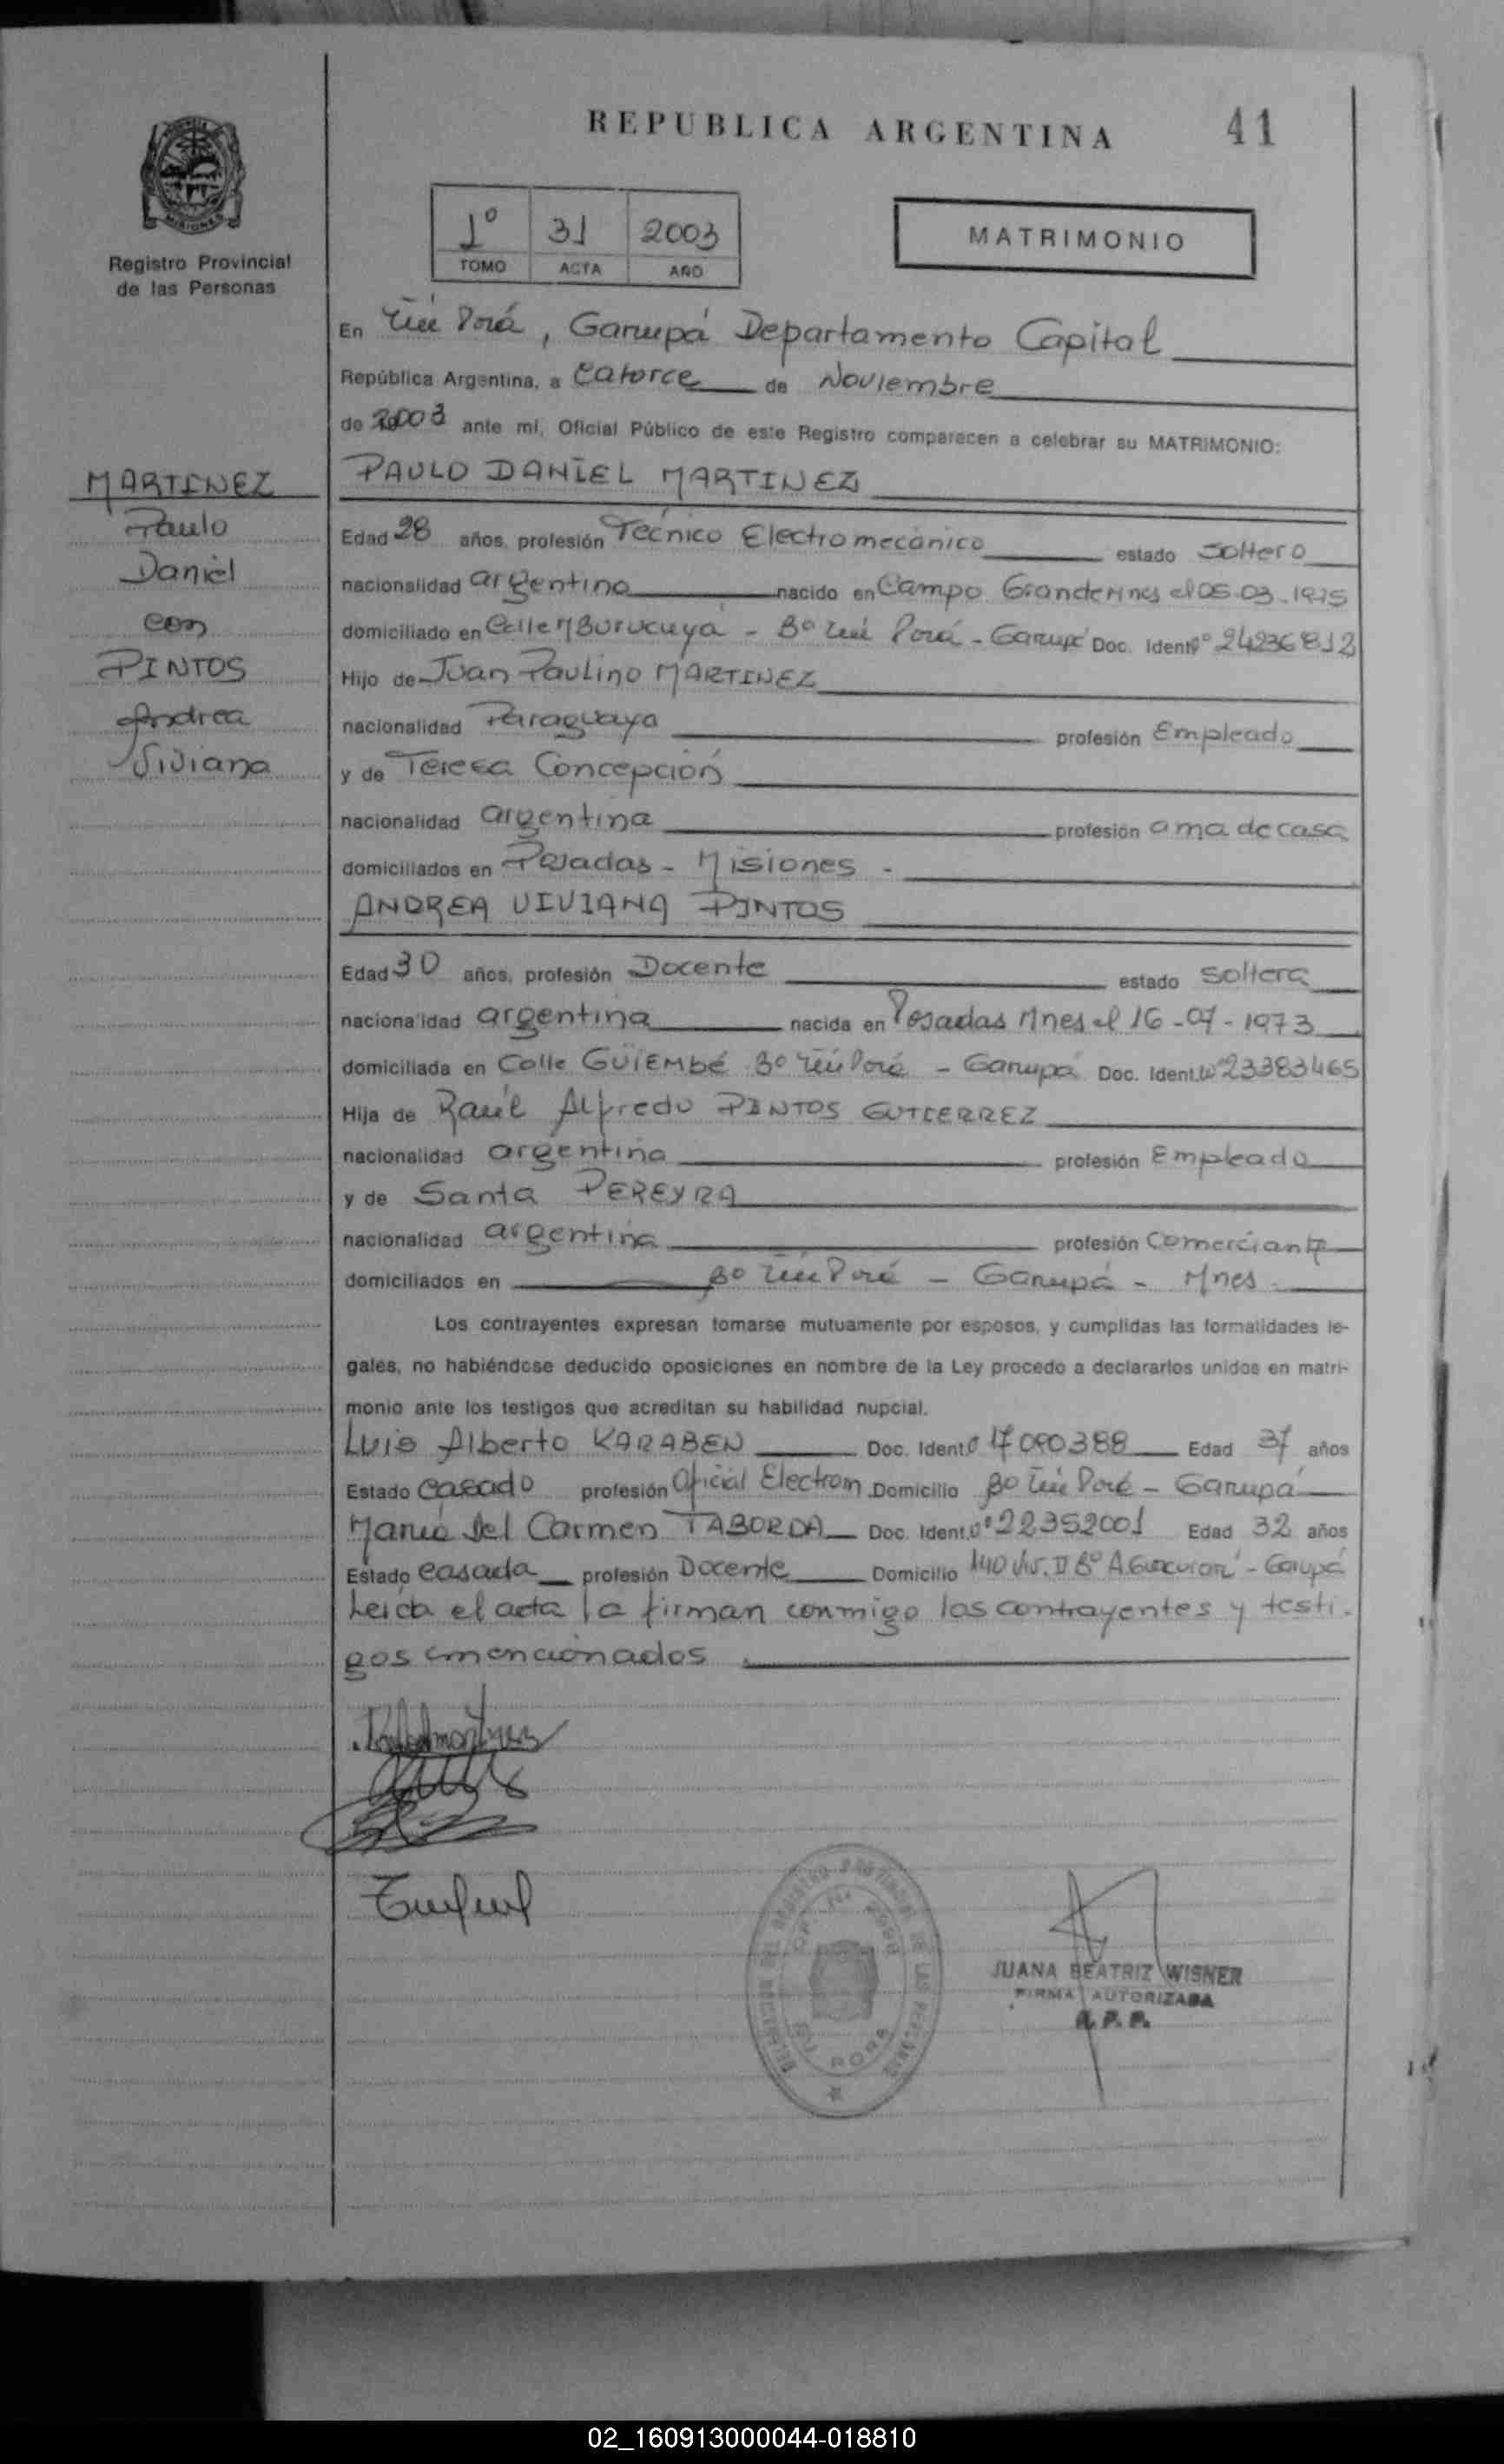 REPUBLICA ARGENTINA
41
MISIONES
Registro Provincial
de las Personas
1º 31 2003
TOMO ACTA AÑO
MATRIMONIO
En Porá, Garupá Departamento Capital
República Argentina, a catorce de Noviembre
de 2003 ante mí, Oficial Público de este Registro comparecen a celebrar su MATRIMONIO:
MARTINEZ
Paulo
Daniel
con
PINTOS
Andrea
Viviana
PAULO DANIEL MARTINEZ
Edad 28 años, profesión Técnico Electromecánico estado soltero
nacionalidad argentino nacido en Campo Grande Mnes el 05-03-1975
domiciliado en Calle MBurucuya - Bº Porá - Garupá Doc. Ident Nº 24236812
Hijo de Juan Paulino MARTINEZ
nacionalidad Paraguaya profesión Empleado
y de Teresa Concepción
nacionalidad argentina profesión ama de casa
domiciliados en Posadas - Misiones -
ANDREA VIVIANA PINTOS
Edad 30 años, profesión Docente estado soltera
nacionalidad argentina nacida en Posadas Mnes el 16-07-1973
domiciliada en Calle GÜIEMbé Bº Porá - Garupá Doc. Ident. Nº 23383465
Hija de Raúl Alfredo PINTOS GUTIERREZ
nacionalidad argentina profesión Empleado
y de Santa PEREYRA
nacionalidad argentina profesión Comerciante
domiciliados en Bº Porá - Garupá - Mnes.
Los contrayentes expresan tomarse mutuamente por esposos, y cumplidas las formalidades le-
gales, no habiéndose deducido oposiciones en nombre de la Ley procedo a declararlos unidos en matri-
monio ante los testigos que acreditan su habilidad nupcial.
Luis Alberto KARABEN Doc. Ident. 17090388 Edad 37 años
Estado casado profesión Oficial Electrom Domicilio Bº Porá - Garupá
María del Carmen TABORDA Doc. Ident. Nº 22352001 Edad 32 años
Estado casada profesión Docente Domicilio 140 Viv. II Bº - Garupá
Leida el acta la firman conmigo los contrayentes y testi-
gos mencionados
JUANA BEATRIZ WISNER
FIRMA AUTORIZADA
R.P.P.
PORA
02_160913000044-018810